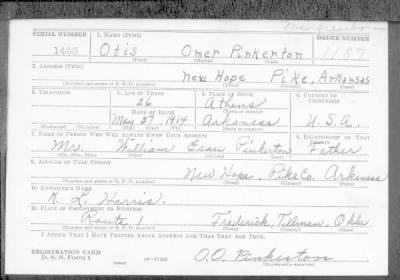 SERIAL NUMBER 1. NAME (Print) ORDER NUMBER
1463 Otis Omer Pinkerton
(First) (Middle) (Last)
2. ADDRESS (Print)
New Hope Pike, Arkansas
(Number and street or R. F. D. number) (Town) (County) (State)
3. TELEPHONE 4. AGE IN YEARS 5. PLACE OF BIRTH 6. COUNTRY OF CITIZENSHIP
26 Athens
DATE OF BIRTH
May 1914 Arkansas U.S.A.
7. NAME OF PERSON WHO WILL ALWAYS KNOW YOUR ADDRESS 8. RELATIONSHIP OF THAT PERSON
Mr. William Esau Pinkerton Father
(Mr., Mrs., Miss) (First) (Middle) (Last)
9. ADDRESS OF THAT PERSON
New Hope, Pike Co. Arkansas
(Number and street or R. F. D. number) (Town) (County) (State)
10. EMPLOYER'S NAME
L. Harris.
11. PLACE OF EMPLOYMENT OR BUSINESS
Route 1 Frederick, Tillman, Okla
(Number and street or R. F. D. number) (Town) (County) (State)
I AFFIRM THAT I HAVE VERIFIED ABOVE ANSWERS AND THAT THEY ARE TRUE.
REGISTRATION CARD
D. S. S. Form 1 O.O. Pinkerton
(Registrant's signature)